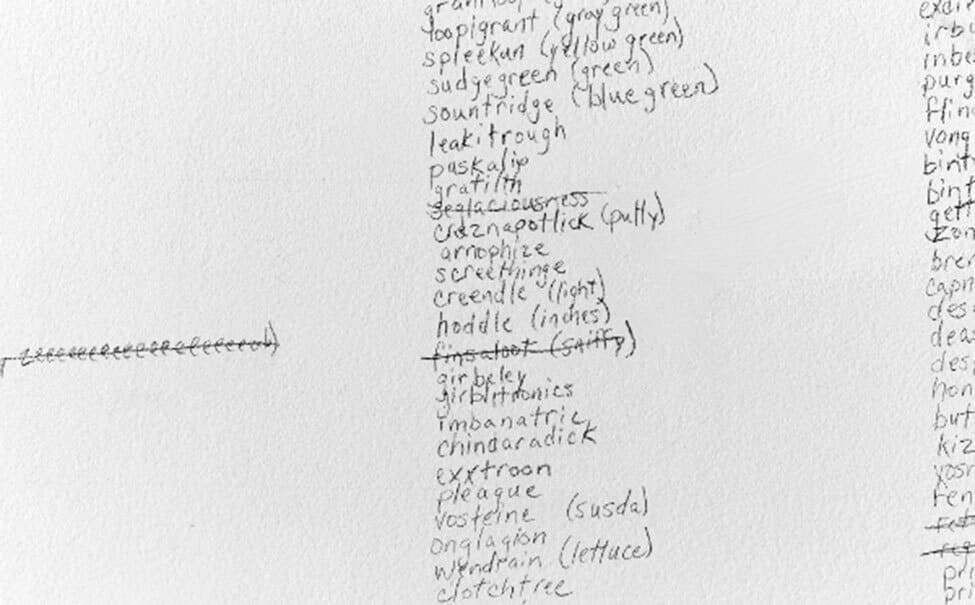 loopigrant (gray green)
spleekun (yellow green)
sudgegreen (green)
sountridge (blue green)
leakitrough
paskalip
gratilth
seglaciousness
craznapotlick (putty)
arnophize
screethinge
creendle (light)
hoddle (inches)
finsaloot (sniffy)
girbeley
girblitronics
imbanatric
chindaradick
exxtroon
pleaque
vosteine (susda)
onglagion
wendrain (lettuce)
clotchtree
irbu
inbe
purg
flin
vong
bint
bint
gett
zon
bren
capn
des
dea
des
hon
but
kiz
yosr
fen
pri
pri